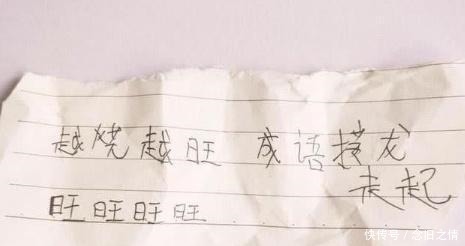 越烧越旺 成语接龙
走起
旺旺旺旺
快传号/念旧之情